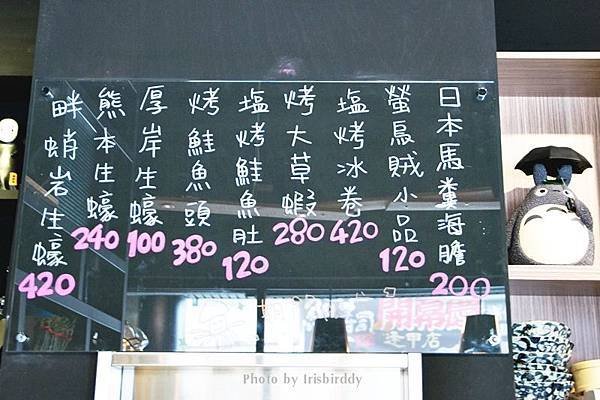 日本馬糞海膽 200
螢烏賊小品 120
塩烤冰卷 420
烤大草蝦 280
塩烤鮭魚肚 120
烤鮭魚頭 380
厚岸生蠔 100
熊本生蠔 240
畔蛸岩生蠔 420
逢甲店
Photo by Irisbirddy